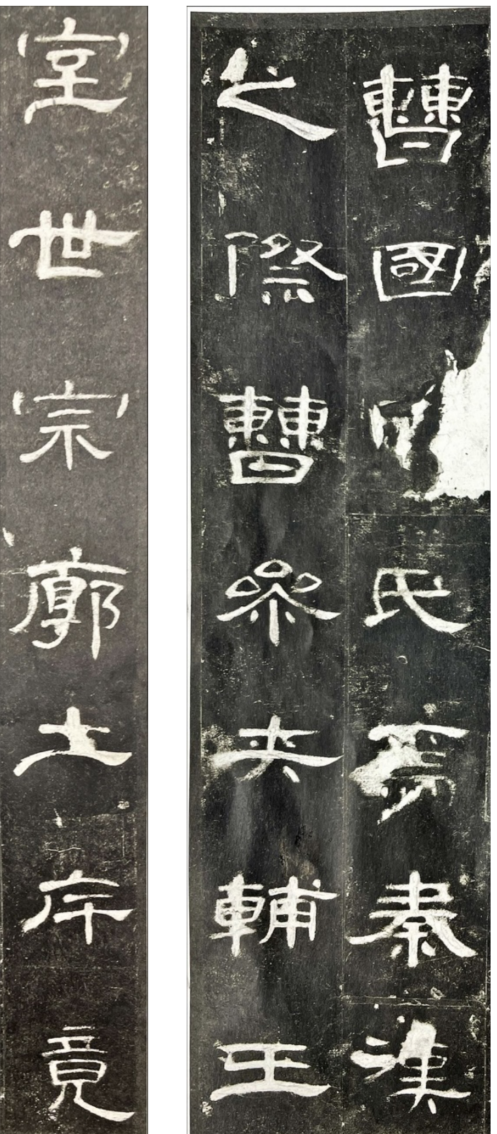 曹國氏焉秦漢
之際曹參夾輔王
室世宗廓土斥竟